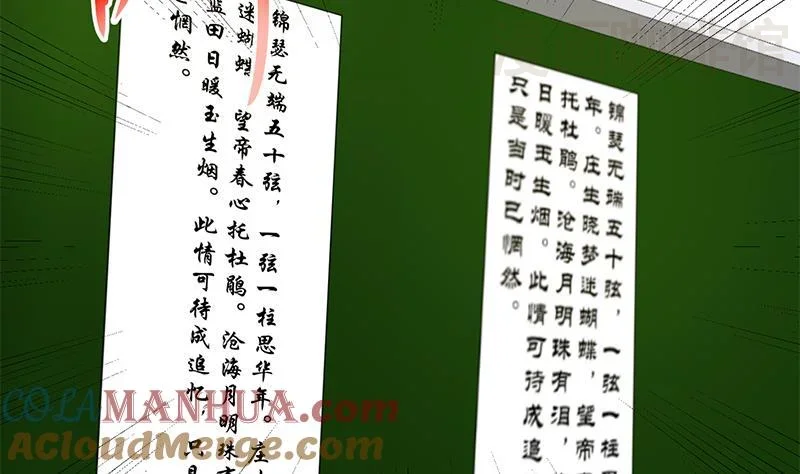 锦瑟无端五十弦，一弦一柱
年。庄生晓梦迷蝴蝶，望帝
托杜鹃。沧海月明珠有泪，
日暖玉生烟。此情可待成追
只是当时已惘然。
锦瑟无端五十弦，一弦一柱思华年。庄
迷蝴蝶 望帝春心托杜鹃。沧海月明珠
蓝田日暖玉生烟。此情可待成追忆，只是
惘然。
COLAMANHUA.COM
AcloudMerge.com